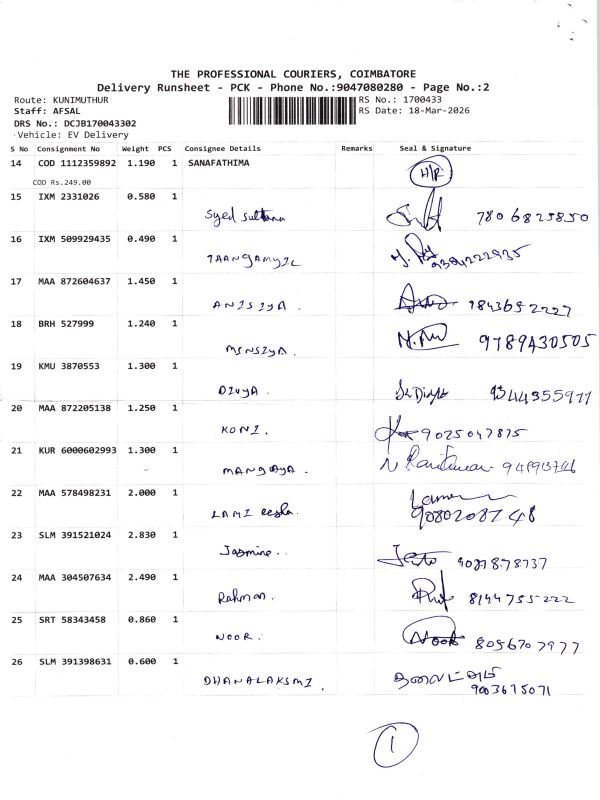 THE PROFESSIONAL COURIERS, COIMBATORE
Delivery Runsheet - PCK - Phone No.:9047080280 - Page No.:2
Route: KUNIMUTHUR
Staff: AFSAL
RS No.: 1700433
DRS No.: DCJB170043302
RS Date: 18-Mar-2026
Vehicle: EV Delivery
S No Consignment No Weight PCS Consignee Details Remarks Seal & Signature
14 COD 1112359892 1.190 1 SANAFATHIMA
COD Rs.249.00
15 IXM 2331026 0.580 1
Syed Sultana 7806825850
16 IXM 509929435 0.490 1
17 MAA 872604637 1.450 1
ANISIYA. 9843652227
18 BRH 527999 1.240 1
MINSIYA. 9789430505
19 KMU 3870553 1.300 1
DIVYA. 9344355977
20 MAA 872205138 1.250 1
KONI. 9025047875
21 KUR 6000602993 1.300 1
22 MAA 578498231 2.000 1
LAMI
23 SLM 391521024 2.830 1
Jasmine..
24 MAA 304507634 2.490 1
Rahman. 8144755222
25 SRT 58343458 0.860 1
NOOR. Noor 8056707977
26 SLM 391398631 0.600 1
DHANALAKSMI. 9003675071
1